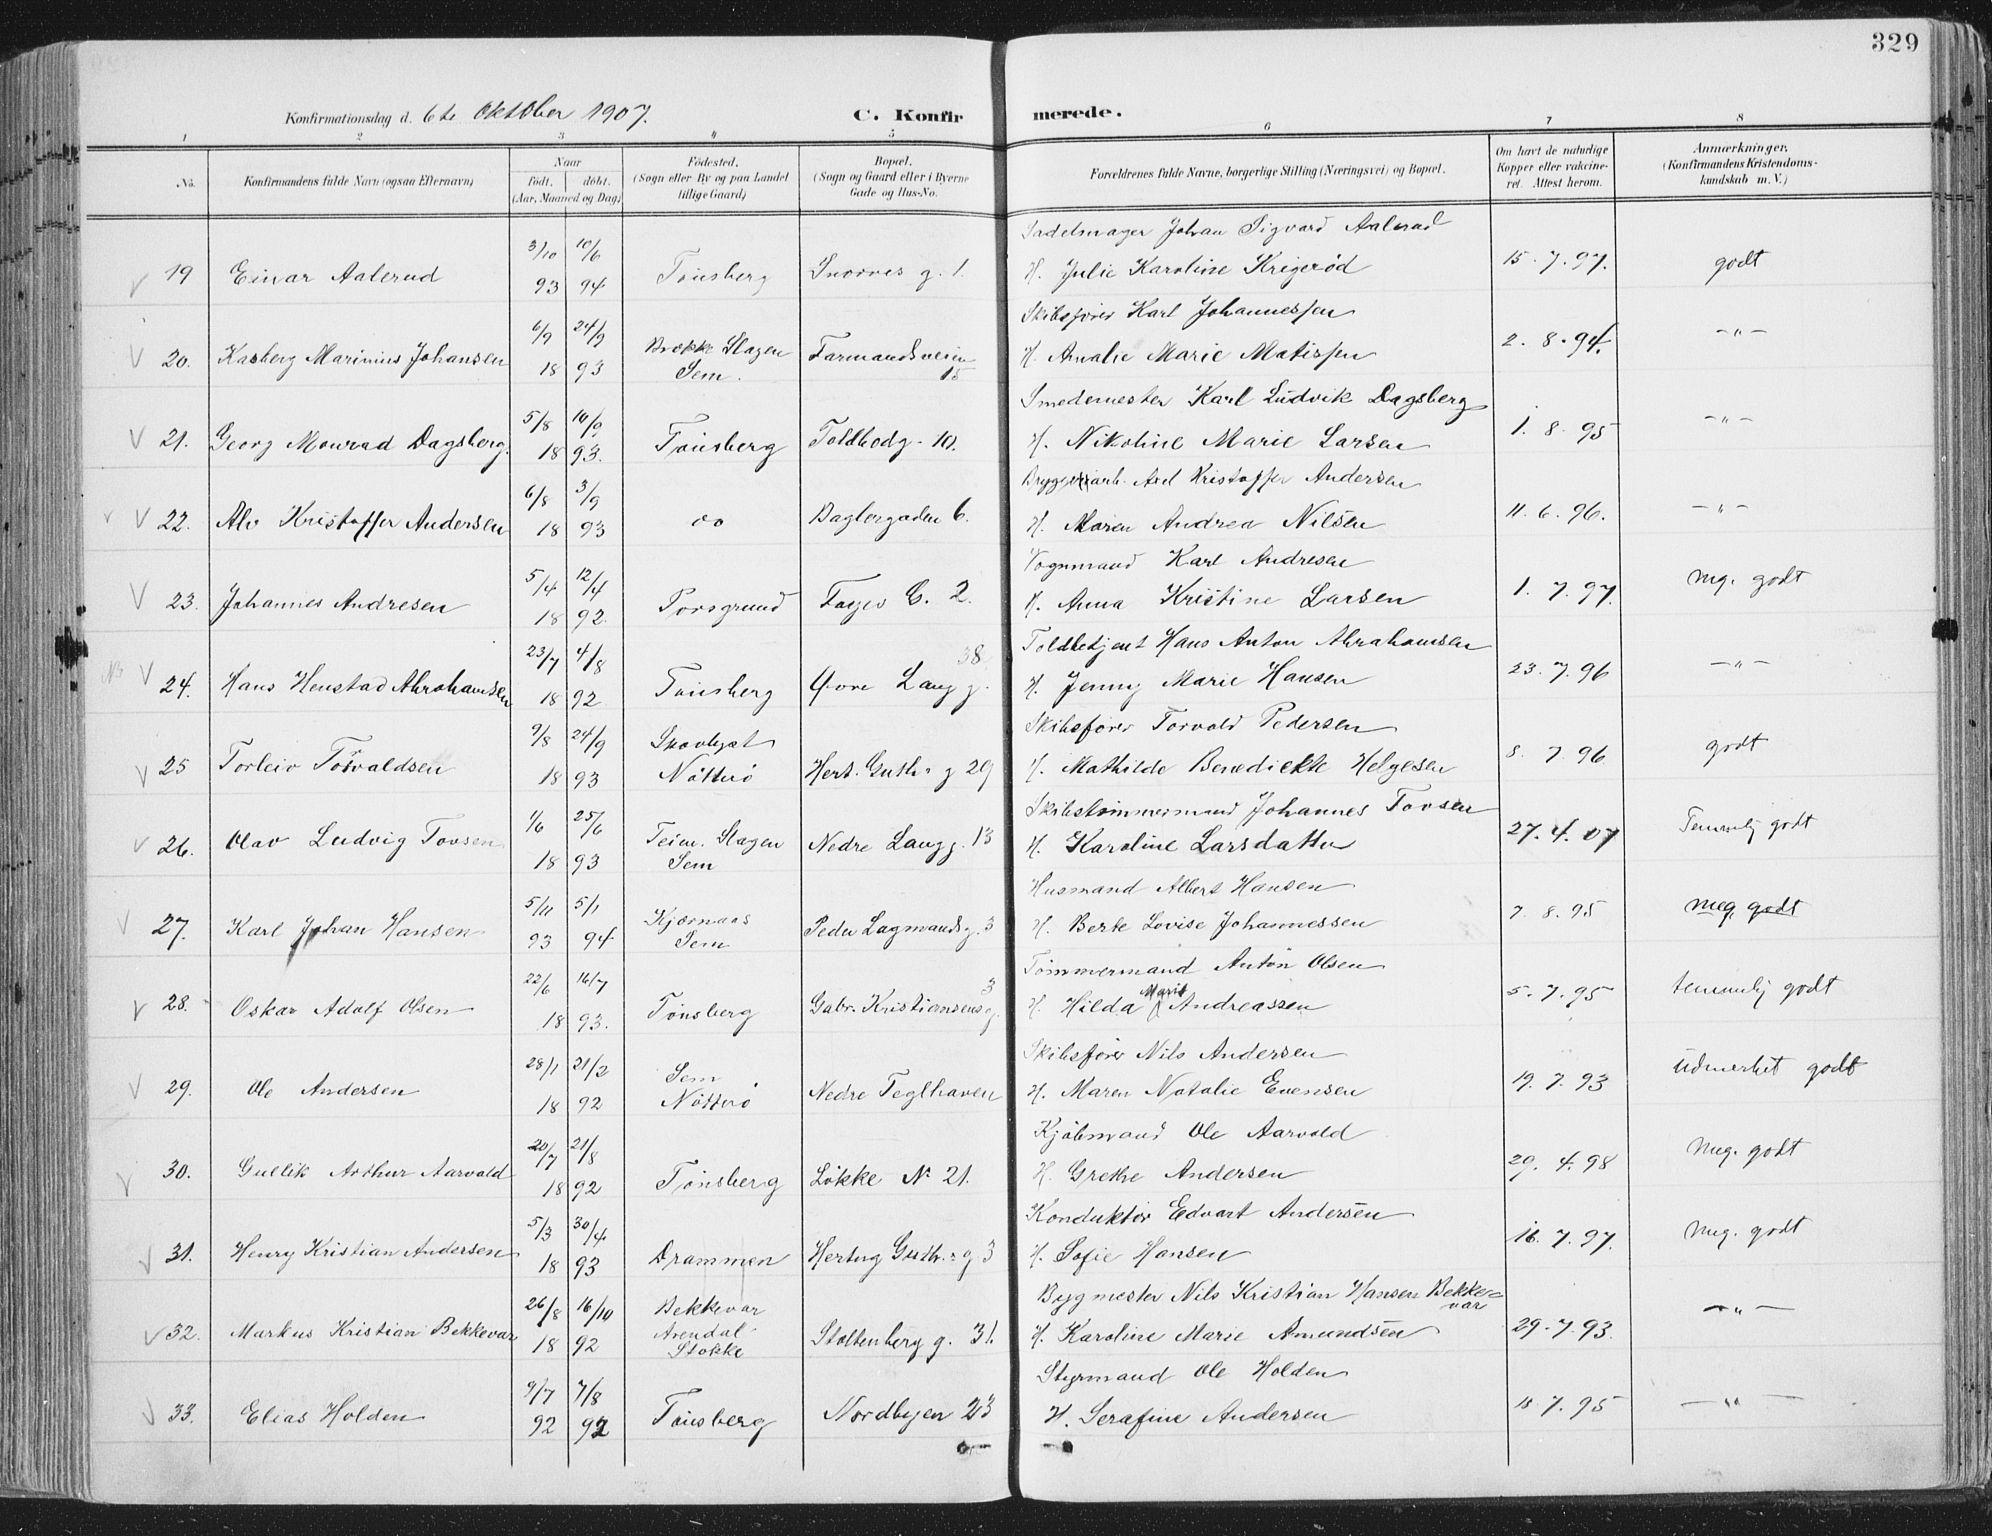 329
Konfirmationsdag d. 6te Oktober 1907. C. Konfir merede.
1 2 3 4 5 6 7 8
No. Konfirmandens fulde Navn (ogsaa Efternavn) Naar født. døbt. (Aar, Maaned og Dag) Fødested. (Sogn eller By og paa Landet tillige Gaard) Bopæl. (Sogn og Gaard eller i Byerne Gade og Hus-No. Forældrenes fulde Navne, borgerlige Stilling (Næringsvei) og Bopæl. Om havt de naturlige Kopper eller vakcineret. Attest herom. Anmærkninger. (Konfirmandens Kristendomskundskab m. V.)
3/10 10/6 Sadelmager Johan Sigvard Aalerud
19 Einar Aalerud 93 94 Tønsberg Snorres g. 1. H. Julie Karoline Krigerød 15.7.97. godt
6/9 24/9 Skibsfører Karl Johannessen
20. Kasberg Marinius Johansen 18 93 Brække Slagen Sem. Farmandsveien 15 H. Amalie Marie Matissen 2.8.94. -"-
5/8 10/9 Smedemester Karl Ludvik Dagsberg
21. Georg Monrad Dagsberg. 18 93. Tønsberg Toldbodg. 10. H. Nikoline Marie Larsen 1.8.95 -"-
6/8 3/9 Bryggeriarb. Axel Kristoffer Andersen
22. Alv Kristoffer Andersen 18 93 do Baglergaden 6. H. Maren Andrea Nilsen 11.6.96. -"-
5/4 12/4 Vognmand Karl Andresen
23. Johannes Andresen 18 92. Porsgrund Fayes G. 2. H. Anna Kristine Larsen 1.7.97. meg. godt
23/7 4/8 38. Toldbetjent Hans Anton Abrahamsen
NB 24. Hans Henstad Abrahamsen 18 92 Tønsberg Øvre Lang g. H. Jenny Marie Hansen 23.7.96 -"-
9/8 24/9 Skibsfører Torvald Pedersen
25 Torleiv Torvaldsen 18 93 Nøtterø Hert. Guth. g 29 H. Mathilde Benedickte Helgesen 8.7.96 godt
1/6 25/6 Skibstømmermand Johannes Tovsen
26. Olav Ludvig Tovsen 18 93 Teien. Slagen Sem Nedre Langg. 13 H. Karoline Larsdatter 27.4.07 Temmelig godt
5/11 5/1 Husmand Albert Hansen
27. Karl Johan Hansen 93 94 Kjærnaas Sem Peder Lagmandsg. 3 H. Berte Lovise Johannessen 7.8.95 meg. godt
22/6 16/7 Tømmermand Anton Olsen
28. Oskar Adolf Olsen 18 93. Tønsberg Gabr. Kristiansens g. 3 H. Hilda Marie Andreassen 5.7.95 temmelig godt
28/1 21/2 Skibsfører Nils Andersen
29. Ole Andersen 18 92 Sem Nøtterø Nedre Teglhaven H. Maren Natalie Evensen 19.7.93 udmerket godt
20/7 21/8 Kjøbmand Ole Aarvold
30. Gullik Arthur Aarvold 18 92 Tønsberg Løkke No 21. H. Grethe Andersen 29.4.98 Meg. godt
5/3 30/4 Konduktør Edvart Andersen
31. Henry Kristian Andersen 18 93 Drammen Hertug Guth. g. 3 H. Sofie Hansen 16.7.97. Meg. godt
26/8 16/10 Bygmester Nils Kristian Hansen Bekkevar
32. Markus Kristian Bekkevar 18 92 Bekkevar Arendal Stokke Stoltenberg g. 31. H. Karoline Marie Amundsen 29.7.93. -"-
9/7 7/8 Styrmand Ole Holden
33. Elias Holden 92 92 Tønsberg Nordbyen 23 H. Serafine Andersen 13 7.95 -"-